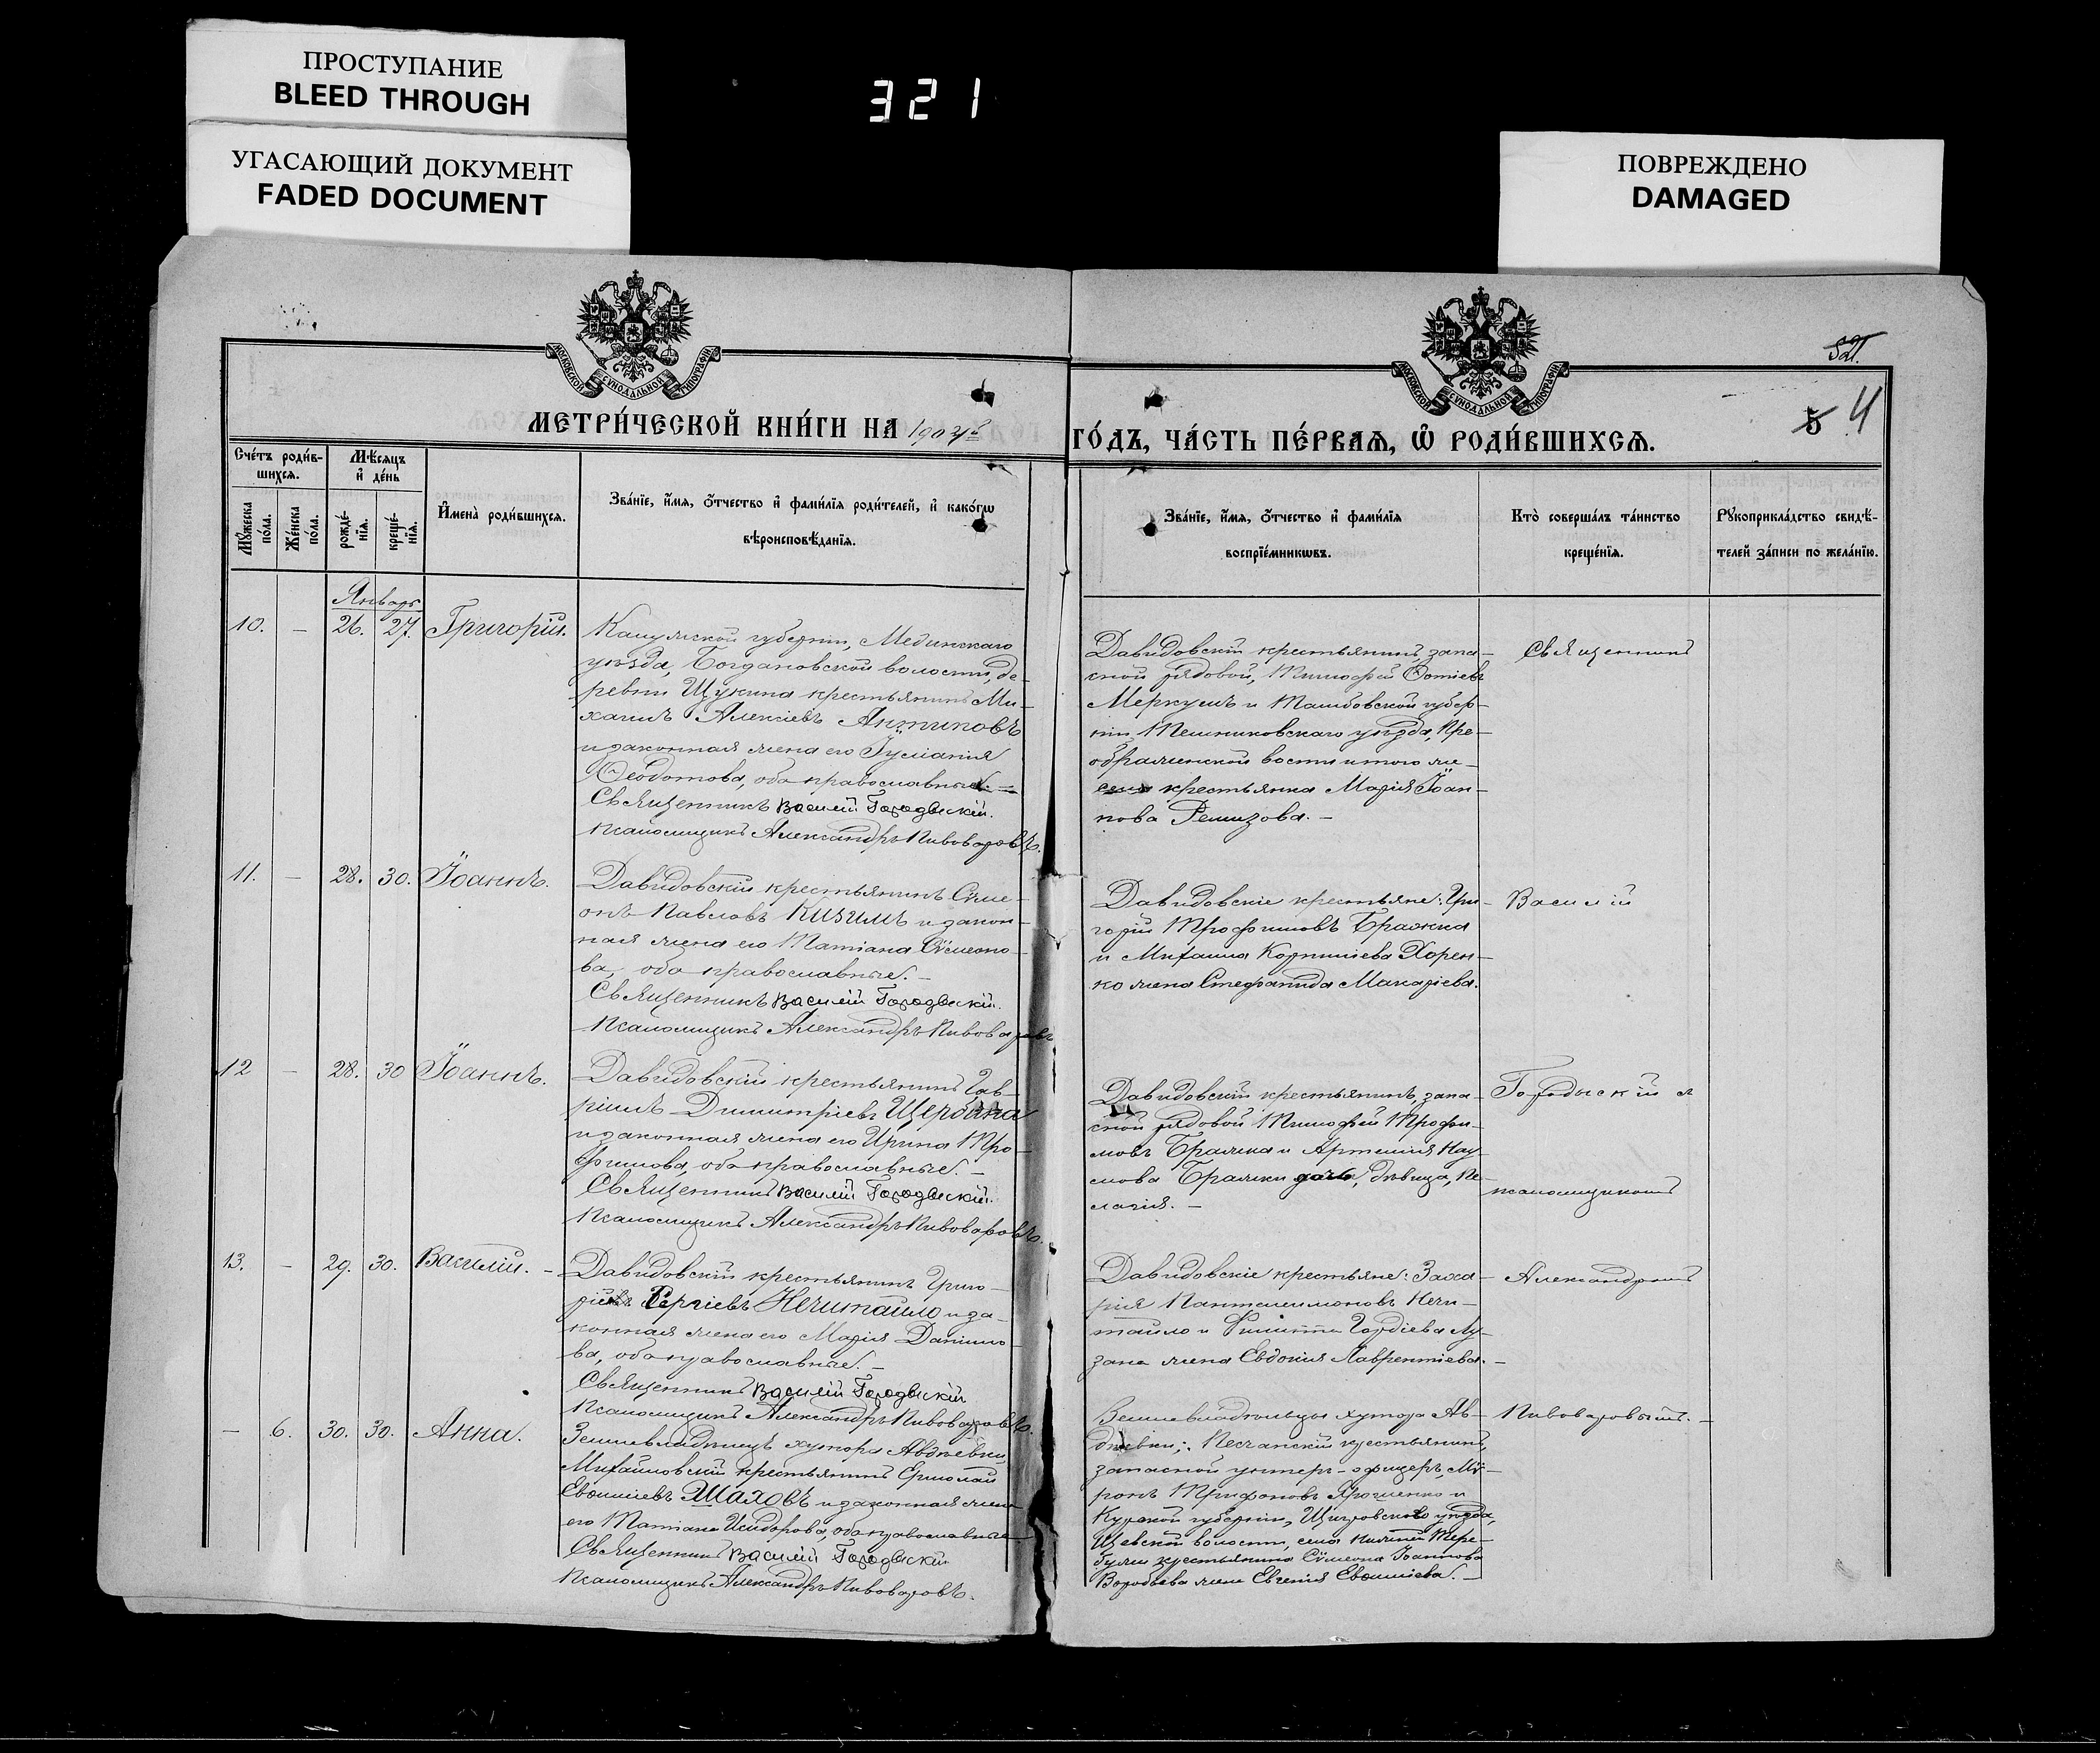 ПРОСТУПАНИЕ
BLEED THROUGH
УГАСАЮЩИЙ ДОКУМЕНТ
FADED DOCUMENT
321
ПОВРЕЖДЕНО
DAMAGED
МОСКОВСКОЙ СУНОДАЛЬНОЙ ТИПОГРАФІИ
МОСКОВСКОЙ СУНОДАЛЬНОЙ ТИПОГРАФІИ
521.
5 4
МЕТРИ́ЧЕСКОЙ КНИ́ГИ НА 1904й
ГО́ДЪ, ЧА́СТЬ ПЕ́РВАѦ, Ѡ҆ РОДИ́ВШИХСѦ.
Сче́тъ роди́в-
шихсѧ.
Мꙋ́жеска
по́ла.
Же́нска
по́ла.
Мѣ́сѧцъ
и҆ де́нь
рожде́-
нїѧ.
креще́-
нїѧ.
И҆мена̀ роди́вшихсѧ.
Зва́нїе, и҆́мѧ, ѻ҆́тчество и҆ фами́лїѧ роди́телей, и҆ како́гѡ
вѣроисповѣ́данїѧ.
Зва́нїе, и҆́мѧ, ѻ҆́тчество и҆ фами́лїѧ
воспрїе́мникѡвъ.
Кто̀ соверша́лъ та́инство
креще́нїѧ.
Рꙋкоприкла́дство свидѣ́-
телей за́писи по жела́нїю.
Январь
10. — 26. 27. Григорій.
Калужской губерніи, Медынскаго
уѣзда, Богдановской волости, де-
ревни Щукина крестьянинъ Ми-
хаилъ Алексіевъ Антиповъ
и законная жена его Іуліанія
Ѳеодотова, оба православные. —
Священникъ Василій Городыскій.
Псаломщикъ Александръ Пивоваровъ.
Давидовскій крестьянинъ, запа-
сной рядовой, Тимофей Фотіевъ
Меркушъ и Тамбовской губер-
ніи Темниковскаго уѣзда, Пре-
ображенской вости и того же
села крестьянка Марія Іоан-
нова Ремизова. —
Священникъ
11. — 28. 30. Іоаннъ.
Давидовскій крестьянинъ Сѵме-
онъ Павловъ Кизимъ и закон-
ная жена его Татіана Сѵмеоно-
ва, оба православные. —
Священникъ Василій Городыскій.
Псаломщикъ Александръ Пивоваровъ
Давидовскіе крестьяне: Гри-
горій Трофимовъ Бражка
и Михаила Корниліева Хорен-
ко жена Стефанида Макаріева.
Василій
12 — 28. 30 Іоаннъ.
Давидовскій крестьянинъ Гав-
ріилъ Димитріевъ Щербина
и законная жена его Ирина Тро-
фимова, оба православные. —
Священникъ Василій Городыскій.
Псаломщикъ Александръ Пивоваровъ.
Давидовскій крестьянинъ, запа-
сной рядовой Тимофей Трофи-
мовъ Бражка и Артемія Нау-
мова Бражки дочь, дѣвица, Пе-
лагія. —
Городыскій съ
псаломщикомъ
13. — 29. 30. Василій. —
Давидовскій крестьянинъ Григо-
рій Сергіевъ Нечитайло и за-
конная жена его Марія Даниило-
ва, оба православные. —
Священникъ Василій Городыскій
Псаломщикъ Александръ Пивоваровъ.
Давидовскіе крестьяне: Заха-
рія Пантелеимоновъ Нечи-
тайло и Филиппа Гордіева Лу-
зана жена Евдокія Лаврентіева. —
Александромъ
— 6. 30. 30. Анна.
Землевладѣлецъ хутора Авдѣевки,
Михайловскій крестьянинъ Ермолай
Евѳиміевъ Шаховъ и законная жена
его Татіана Исидорова, оба православные
Священникъ Василій Городыскій
Псаломщикъ Александръ Пивоваровъ.
Землевладѣльцы хутора Ав-
дѣевки: Песчанскій крестьянинъ,
запасной унтеръ-офицеръ, Мѵ-
ронъ Трифоновъ Ярошенко и
Курской губерніи, Щигровскаго уѣзда,
волости, села Нижній Тере-
бужъ крестьянина Сѵмеона Іоаннова
Воробьева жена Евгенія Евѳиміева. —
Пивоваровымъ. —